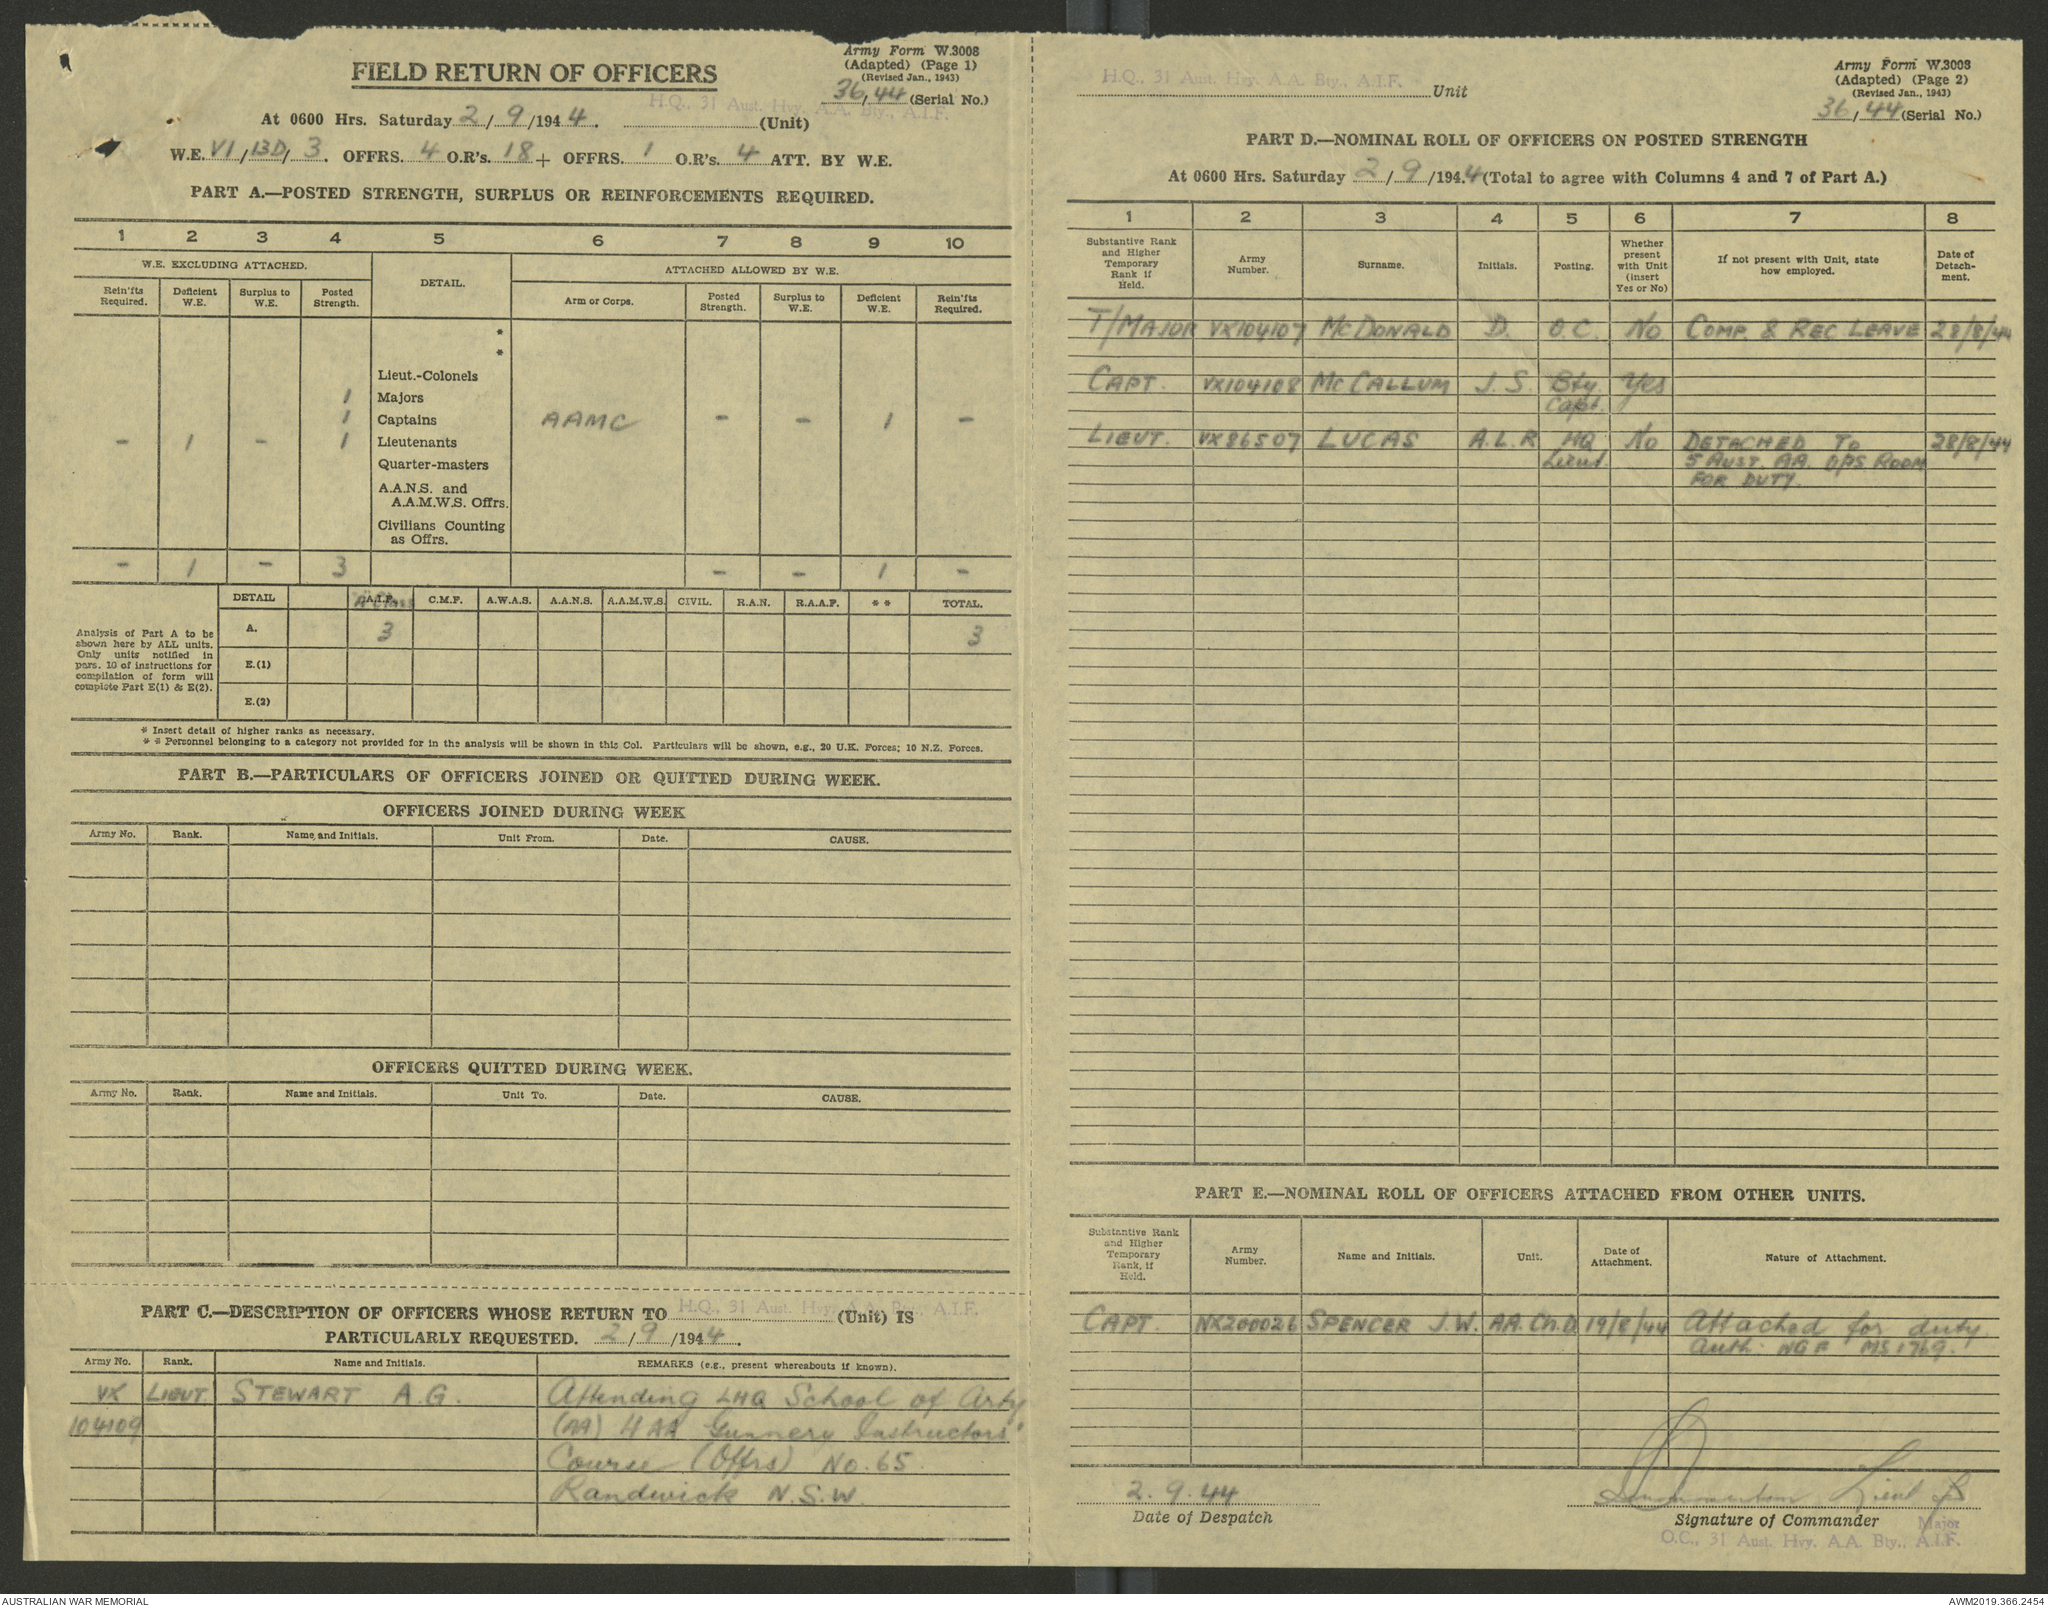 Army Form W.3008
(Adapted) (Page 1)
(Revised Jan., 1943)
36/44 (Serial No.)
FIELD RETURN OF OFFICERS
H.Q., 31 Aust. Hvy. A.A. Bty., A.I.F.
At 0600 Hrs. Saturday 2/9/1944. (Unit)
W.E. VI/13D/3. OFFRS. 4 O.R's. 18 + OFFRS. 1 O.R's. 4 ATT. BY W.E.
PART A.—POSTED STRENGTH, SURPLUS OR REINFORCEMENTS REQUIRED.
1 2 3 4 5 6 7 8 9 10
W.E. EXCLUDING ATTACHED. DETAIL. ATTACHED ALLOWED BY W.E.
Rein'fts Required. Deficient W.E. Surplus to W.E. Posted Strength. Arm or Corps. Posted Strength. Surplus to W.E. Deficient W.E. Rein'fts Required.
*
*
Lieut.-Colonels
1 Majors
1 Captains AAMC - - 1 -
- 1 - 1 Lieutenants
Quarter-masters
A.A.N.S. and
A.A.M.W.S. Offrs.
Civilians Counting
as Offrs.
- 1 - 3 - - 1 -
DETAIL A.I.F. A Class C.M.F. A.W.A.S. A.A.N.S. A.A.M.W.S. CIVIL. R.A.N. R.A.A.F. * * TOTAL.
Analysis of Part A to be
shown here by ALL units.
Only units notified in
para. 10 of instructions for
compilation of form will
complete Part E(1) & E(2).
A. 3 3
E.(1)
E.(2)
* Insert detail of higher ranks as necessary.
* * Personnel belonging to a category not provided for in the analysis will be shown in this Col. Particulars will be shown, e.g., 20 U.K. Forces; 10 N.Z. Forces.
PART B.—PARTICULARS OF OFFICERS JOINED OR QUITTED DURING WEEK.
OFFICERS JOINED DURING WEEK
Army No. Rank. Name and Initials. Unit From. Date. CAUSE.
OFFICERS QUITTED DURING WEEK.
Army No. Rank. Name and Initials. Unit To. Date. CAUSE.
PART C.—DESCRIPTION OF OFFICERS WHOSE RETURN TO H.Q., 31 Aust. Hvy. A.A. Bty., A.I.F. (Unit) IS
PARTICULARLY REQUESTED. 2/9/1944.
Army No. Rank. Name and Initials. REMARKS (e.g., present whereabouts if known).
VX LIEUT. STEWART A.G. Attending LHQ School of Arty
104109 (AA) HAA Gunnery Instructors'
Course (Offrs) No. 65
Randwick N.S.W.
H.Q., 31 Aust. Hvy. A.A. Bty., A.I.F. Unit
Army Form W.3008
(Adapted) (Page 2)
(Revised Jan., 1943)
36/44 (Serial No.)
PART D.—NOMINAL ROLL OF OFFICERS ON POSTED STRENGTH
At 0600 Hrs. Saturday 2/9/1944 (Total to agree with Columns 4 and 7 of Part A.)
1 2 3 4 5 6 7 8
Substantive Rank and Higher Temporary Rank if Held. Army Number. Surname. Initials. Posting. Whether present with Unit (insert Yes or No) If not present with Unit, state how employed. Date of Detach-ment.
T/MAJOR VX104107 McDONALD D. O.C. No COMP. & REC LEAVE 28/8/44
CAPT. VX104108 McCALLUM J.S. Bty. Yes
Capt.
LIEUT. VX86507 LUCAS A.L.R HQ No DETACHED TO 28/8/44
Lieut. 5 AUST. AA. OPS ROOM
FOR DUTY.
PART E.—NOMINAL ROLL OF OFFICERS ATTACHED FROM OTHER UNITS.
Substantive Rank and Higher Temporary Rank, if Held. Army Number. Name and Initials. Unit. Date of Attachment. Nature of Attachment.
CAPT. NX200026 SPENCER J.W. AA.Ch.D 19/8/44 Attached for duty
Auth. NGF MS1769.
2.9.44 Lieut
Date of Despatch Signature of Commander
Major
O.C., 31 Aust. Hvy. A.A. Bty., A.I.F.
AUSTRALIAN WAR MEMORIAL AWM2019.366.2454